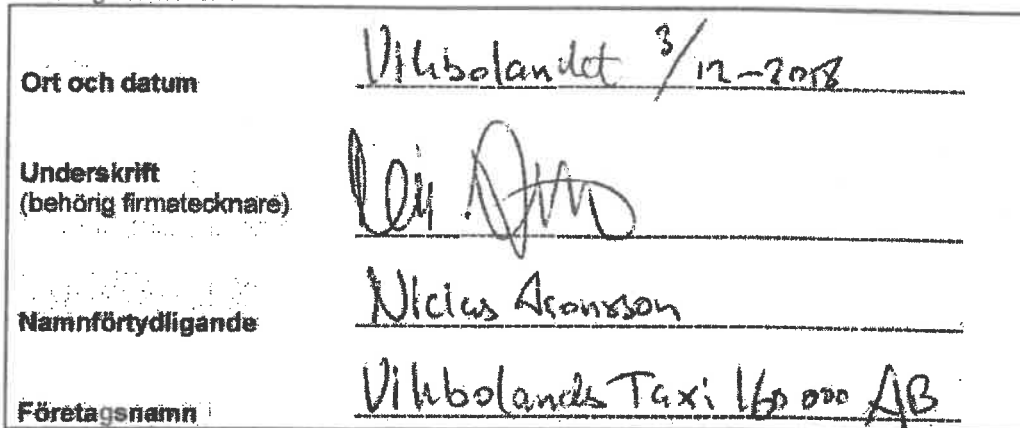 Ort och datum Vikbolandet 3/12-2018
Underskrift
(behörig firmatecknare)
Namnförtydligande Niclas Aronsson
Företagsnamn Vikbolands Taxi 160 000 AB